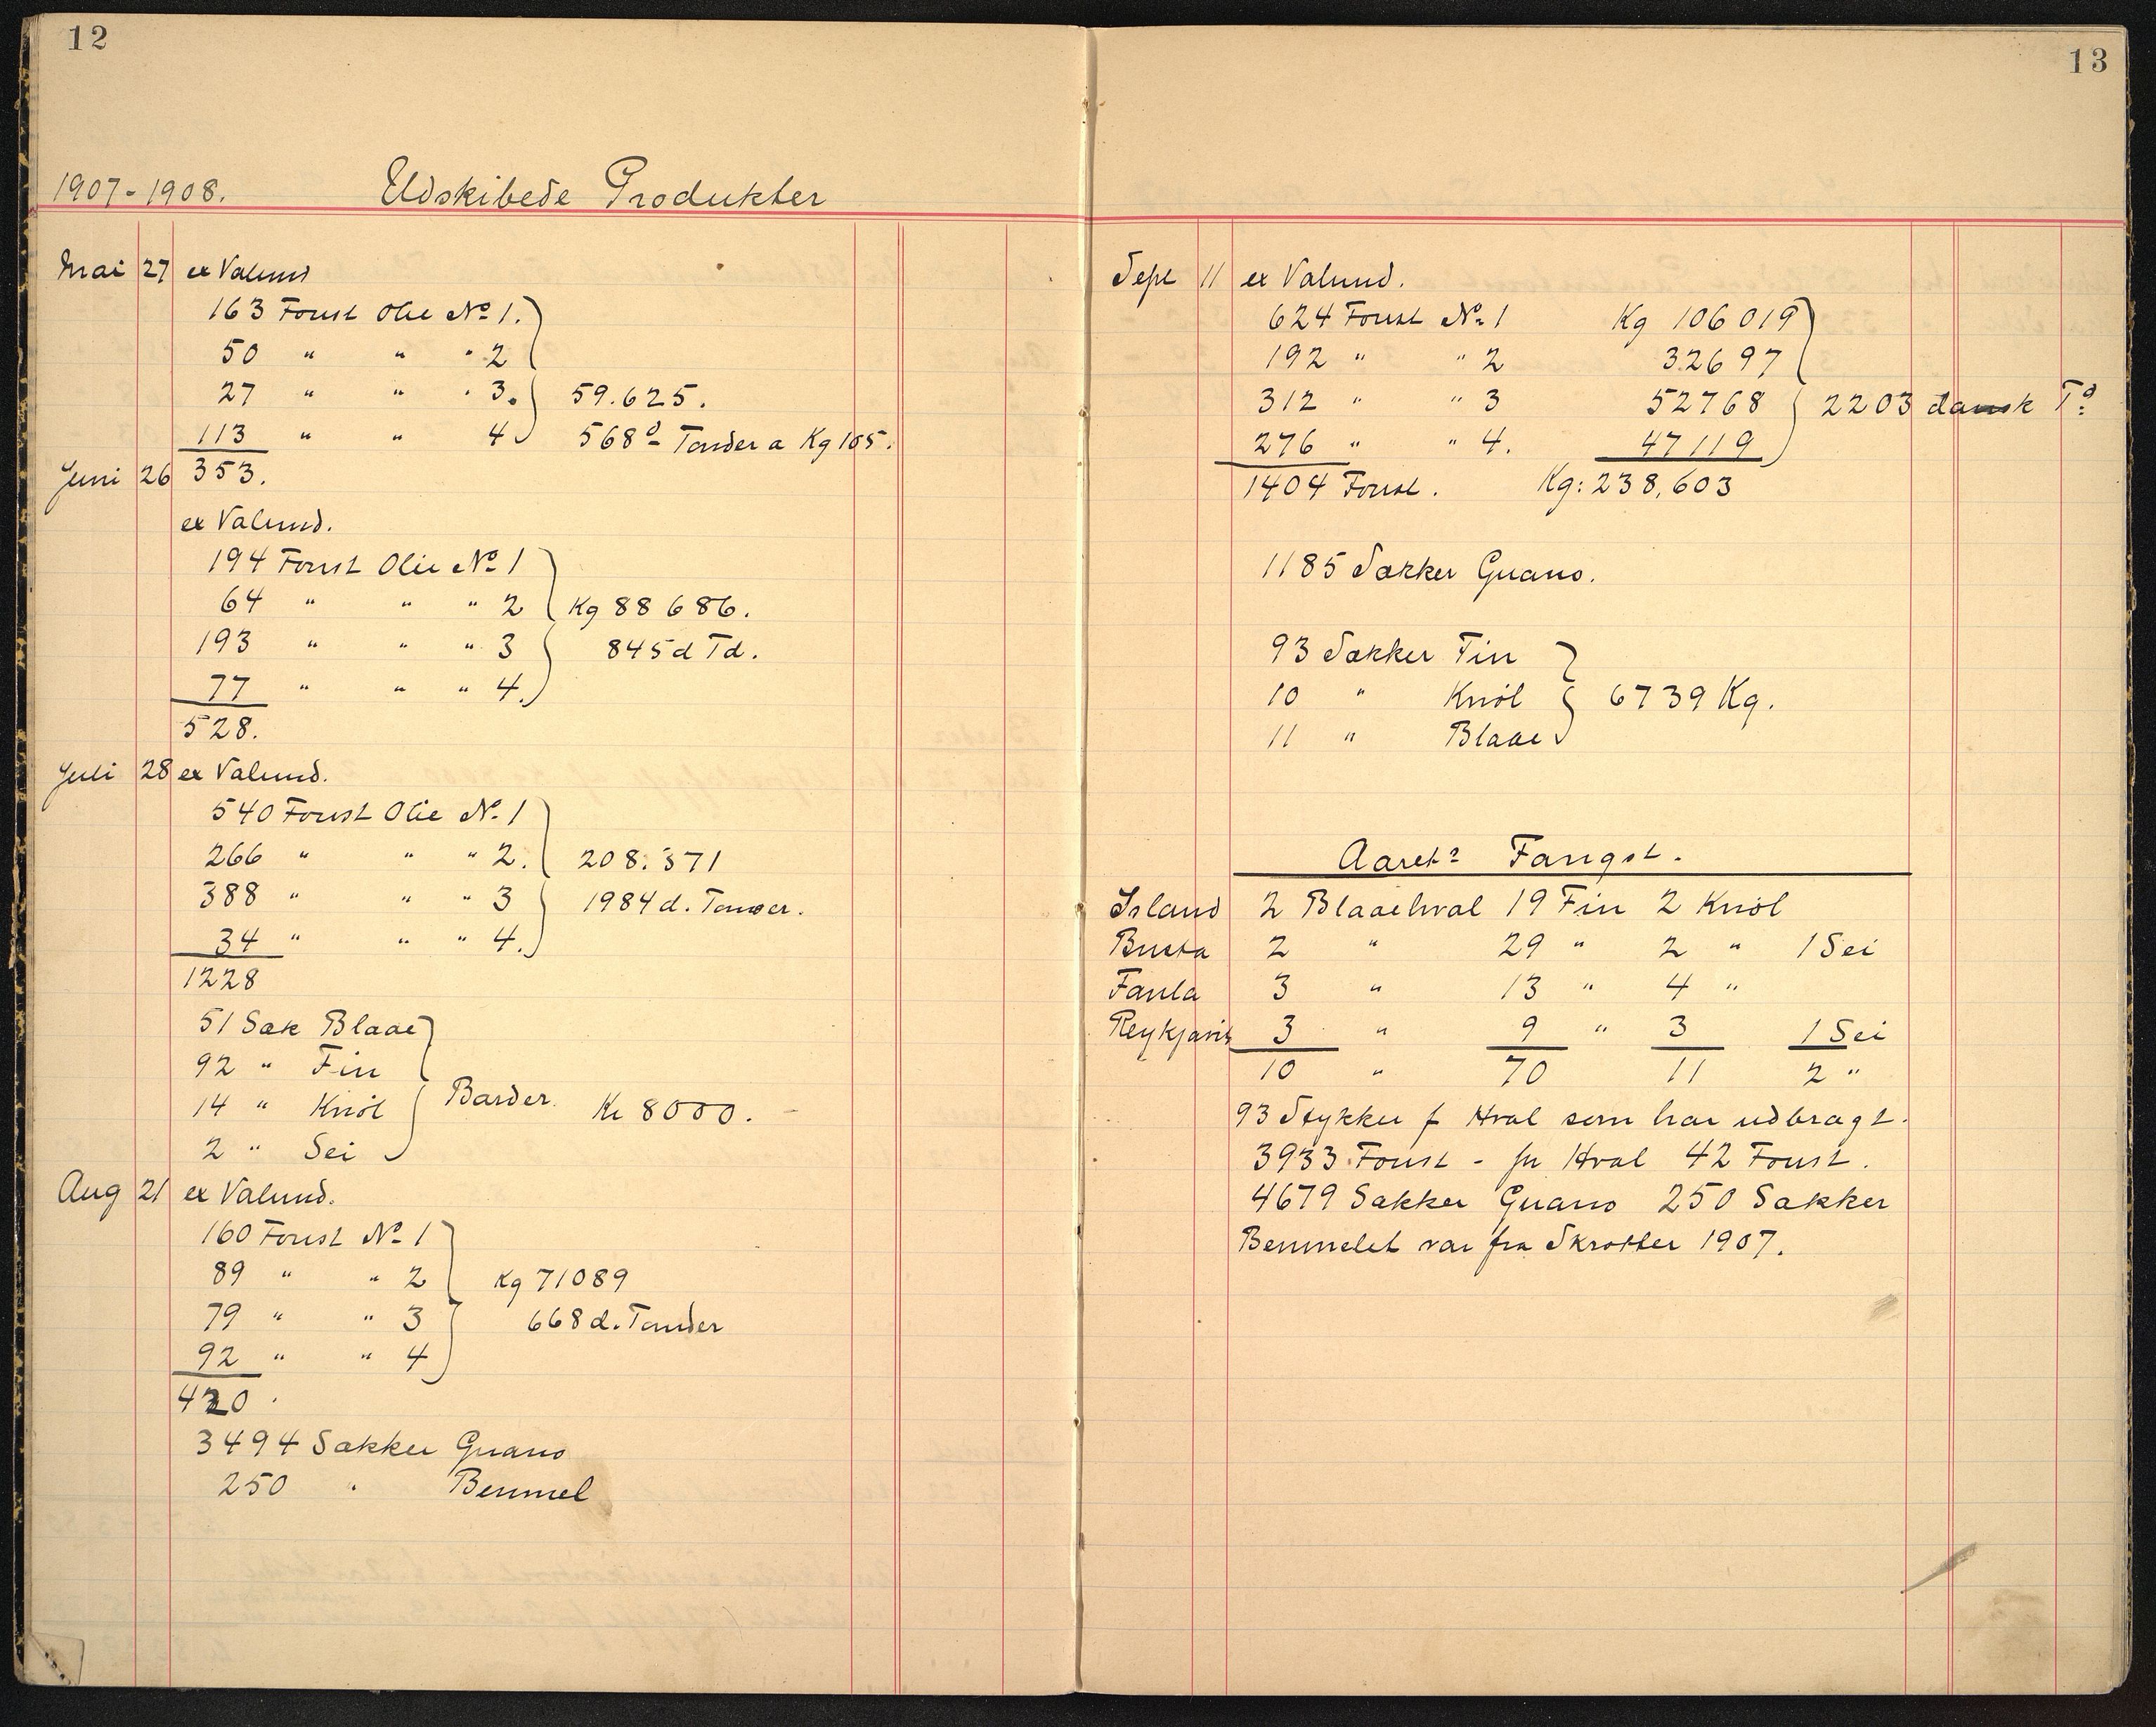 12
1907-1908. Udskibede Produkter
Mai 27 ex Valund
163 Foust Olie No 1.
50 " " " 2
27 " " " 3. 59.625.
113 " " 4 568 d Tønder a Kg 105.
Juni 26 353.
ex Valund.
194 Foust Olie No 1
64 " " " 2 Kg 88 686.
193 " " " 3 845 d Td.
77 " " " 4.
528.
Juli 28 ex Valund.
540 Foust Olie No 1
266 " " " 2. 208.371
388 " " " 3 1984 d. Tønder.
34 " " " 4.
1228
51 Sæk Blaae
92 " Fin
14 " Knöl Barder. Kr 8000.-
2 " Sei
Aug 21 ex Valund.
160 Foust No 1
89 " " 2 Kg 71089
79 " " 3 668 d. Tønder
92 " " 4
420.
3494 Sækker Guano
250 " Benmel
13
Sept 11 ex Valund.
624 Foust No 1 Kg 106 019
192 " " 2 32697
312 " " 3 52768 2203 dansk Td
276 " " 4. 47119
1404 Foust. Kg: 238,603
1185 Sækker Guano.
93 Sækker Fin
10 " Knöl 6739 Kg.
11 " Blaae
Aarets Fangst.
Island 2 Blaaehval 19 Fin 2 Knöl
Busta 2 " 29 " 2 " 1 Sei
Faula 3 " 13 " 4 "
Reykjavik 3 " 9 " 3 1 Sei
10 " 70 11 2 "
93 Stykker f Hval som har udbragt.
3933 Foust - pr Hval 42 Foust.
4679 Sækker Guano 250 Sækker
Benmelet var fra Skrotter 1907.